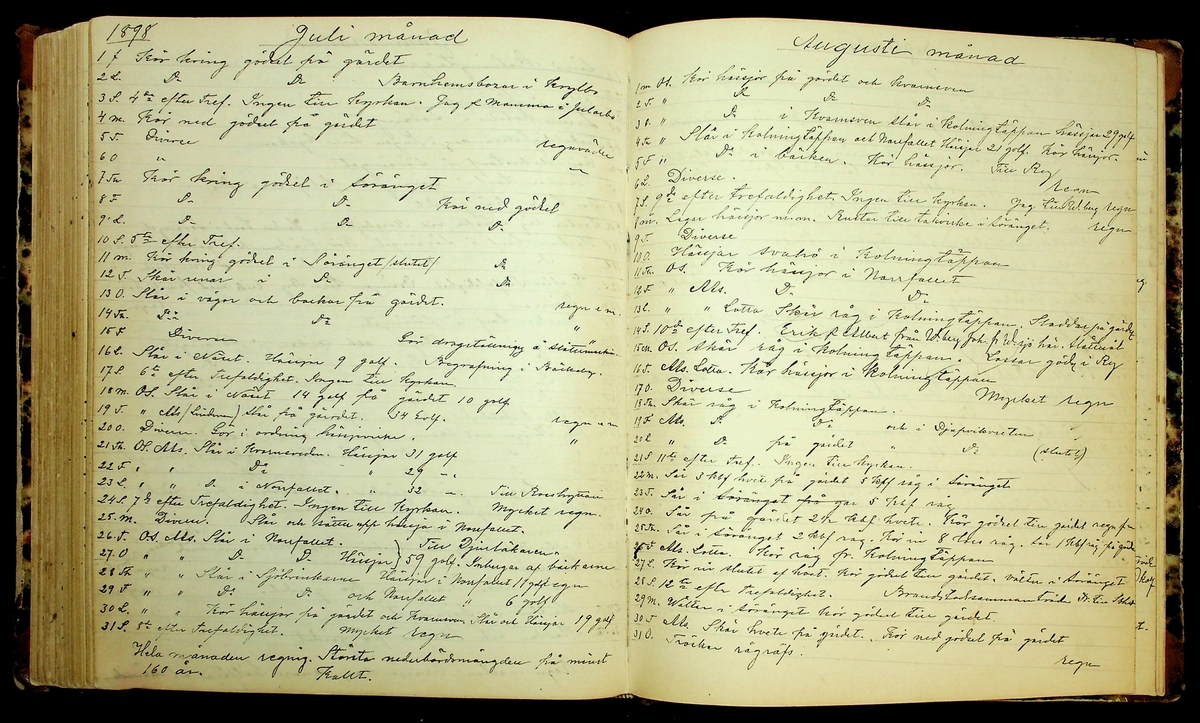 1898 Juli månad
1 F Kör kring gödsel på gärdet
2 L. Do Do Barnhemsbazar i Krylbo
3 S. 4de efter Tref. Ingen till kyrkan. Jag & Mamma i
4 M. Kör ned gödsel på gärdet
5 T. Diverse regnväder
6 O " "
7 Th Kör kring gödsel i Söränget
8 F Do Do Kör ned gödsel
9 L. Do Do Do
10 S. 5te efter Tref.
11 M. Kör kring gödsel i Noränget /slutet/ Do
12 T. Skär renar i Do Do
13 O. Slår i vägar och backar på gärdet. regn e.m.
14 Th. Do Do "
15 F Diverse Gör dragställning å slåttermaskin
16 L. Slår i Näset. Hässjar 9 golf. Begrafning i
17 S. 6te efter Trefaldighet. Ingen till kyrkan.
18 M. OS. Slår i Näset 14 golf på gärdet 10 golf
19 T. " Ms /Lindman/ slår på gärdet. 34 golf. regn e m
20 O. Diverse. Gör i ordning hässjevirke. "
21 Th. OS. Ms. Slår i Kvarnsveden. Hässjar 31 golf
22 F " " Do " 29 "
23 L. " " D. i Norrfallet. " 32 ". Till
24 S. 7de efter Trefaldighet. Ingen till kyrkan. Mycket regn.
25. M. Diverse. Slår och sätter upp hässja i Norrfallet.
26. T. OS. Ms. Slår i Norrfallet. Till Djurläkaren.
27. O " " D. D. Hässjar } 59 golf. Inbergar af backarne
28 Th " " Slår i Sjöbrinkarne Hässjar i Norrfallet 11 golf regn
29 F " " Do D. och Norrfallet " 6 golf
30 L. " " Kör hässjor på gärdet och Kvarnsven. Slår och Hässjar 19 golf
31 S. 8de efter Trefaldighet. Mycket regn
Hela månaden regnig. Största nederbördsmängden på minst
160 år. Kallt.
Augusti månad
1 M OS. Kör hässjor på gärdet och Kvarnsven
2 T. " D. D. Do
3 O. " D. i Kvarnsven slår i Kolningtäppan hässjar 29 golf
4 Th " Slår i Kolningtäppan och Norrfallet Hässjar 21 golf. Kör hässjor.
5 F " Do i backen. Kör hässjor. Till Ry
6 L. Diverse. regn
7 S. 9de efter trefaldighet. Ingen till kyrkan. Jag till regn
8 M. Lagar hässjor m.m. Rustar till takvirke i Söränget. regn
9 T. Diverse
10 O. Hässjar i Kolningtäppan
11 Th. OS. Kör hässjor i Norrfallet
12 F " Ms. D. Do
13 L. " " Lotta Skär råg i Kolningtäppan. Sladdar på gärdet
14 S. 10de efter Tref. Erik & Albert från
15 M. OS. skär råg i Kolningtäppan. Lassar göds i Ry
16 T. Ms. Lotta. Kör hässjor i Kolningtäppan
17 O. Diverse Mycket regn
18 Th. Skär råg i Kolningtäppan.
19 F Ms. D. Do och i
20 L " Do på gärdet " Do (slutet)
21 S 11te efter Tref. Ingen till kyrkan.
22 M. Sår 3 kbf hvete på gärdet 5 kbf råg i Söränget
23 T. Sår i Söränget 5 kbf råg
24 O. Sår på gärdet 2½ kbf. hvete. Kör gödsel till gärdet regn f m
25 Th. Sår i Söränget 2 kbf råg. Kör in 8 lass råg. Sår 1 kbf råg på gärdet
26 F Ms. Lotta. Kör råg fr. Kolningtäppan
27 L. Kör in slutet af höet. Kör gödsel till gärdet. vältar i Söränget.
28 S. 12te efter trefaldighet. Brandstodssammanträde
29 M. Vältar i Söränget Kör gödsel till gärdet.
30 T Ms. Skär hvete på gärdet. Kör ned gödsel på gärdet
31 O. Tröskar rågräfs. regn